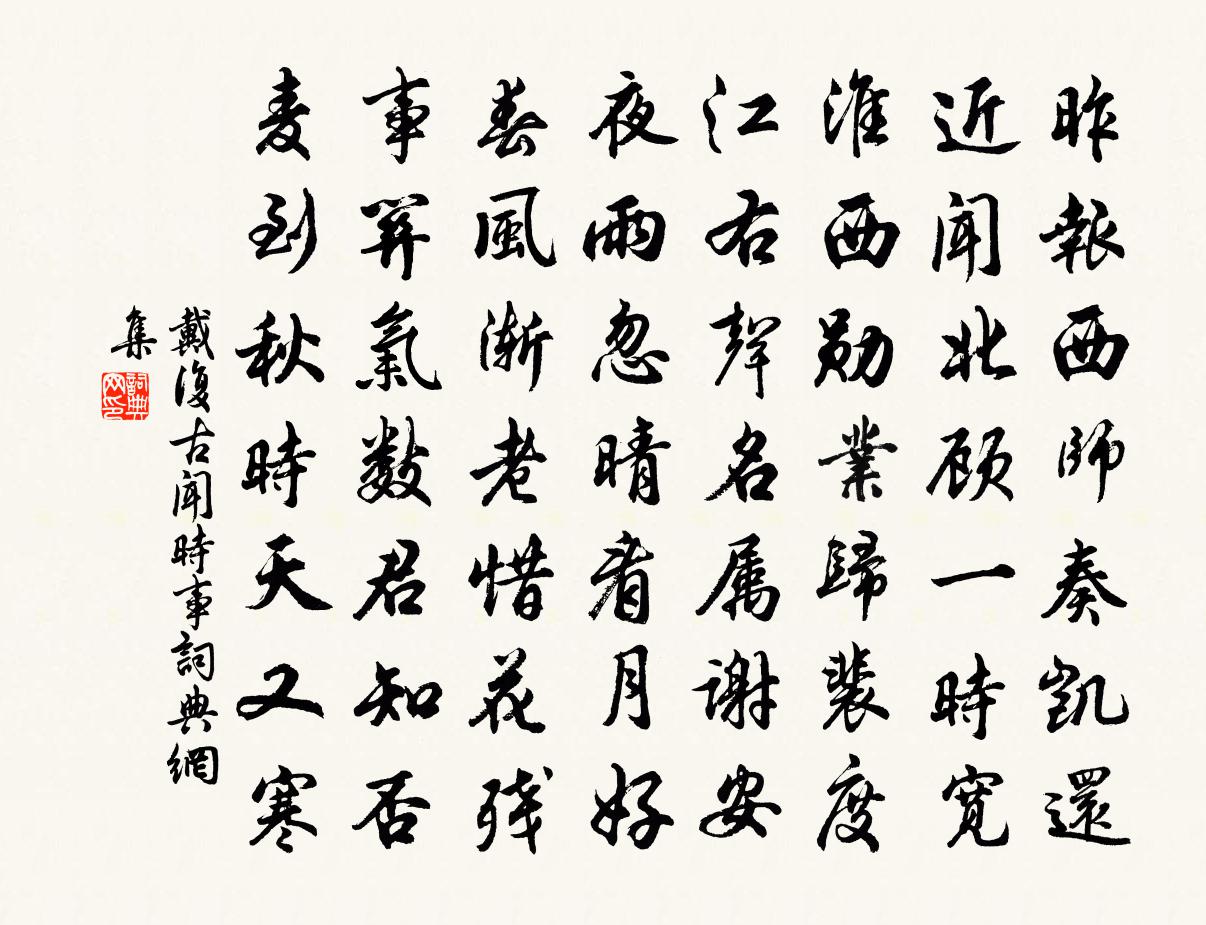 昨報西師奏凱還
近聞北顾一時寬
淮西勋業歸裴度
江右聲名属謝安
夜雨忽晴看月好
春風漸老惜花残
事關氣數君知否
麦到秋時天又寒
戴復古聞時事詞典網
集
詞典網印